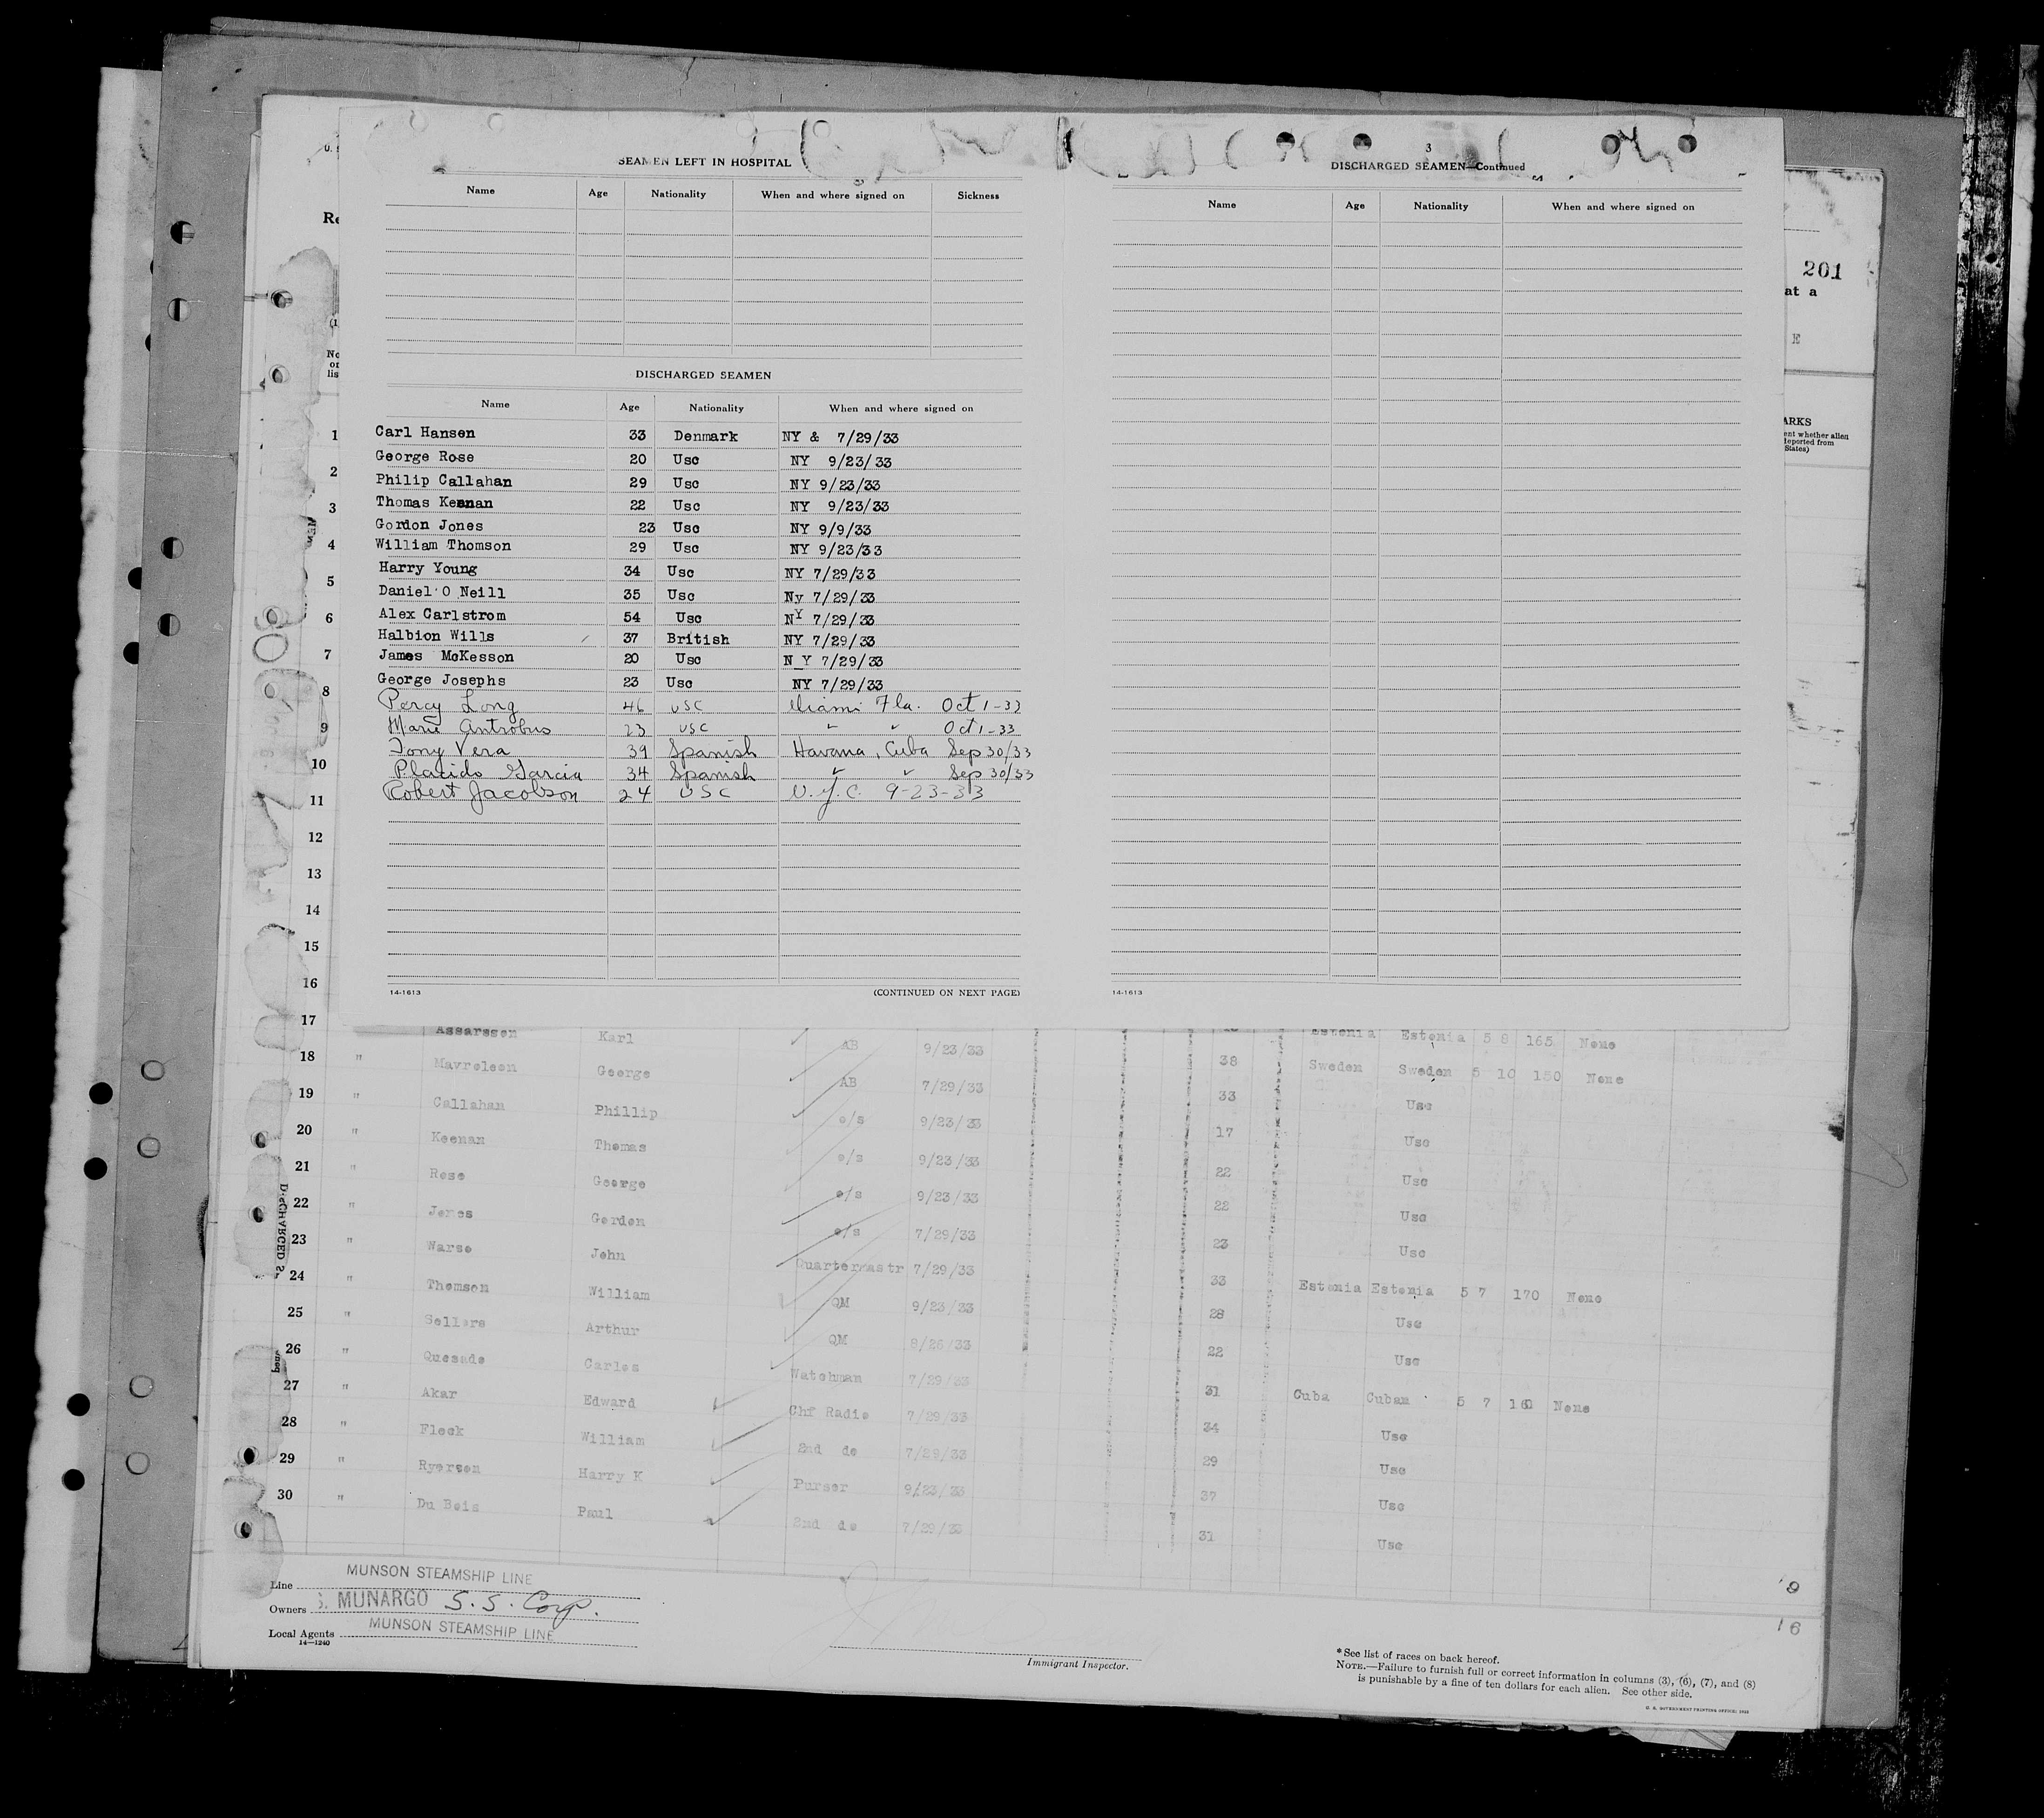 SEAMEN LEFT IN HOSPITAL
Name Age Nationality When and where signed on Sickness
DISCHARGED SEAMEN
Name Age Nationality When and where signed on
Carl Hansen 33 Denmark NY & 7/29/33
George Rose 20 Usc NY 9/23/33
Philip Callahan 29 Usc NY 9/23/33
Thomas Keenan 22 Usc NY 9/23/33
Gordon Jones 23 Usc NY 9/9/33
William Thomson 29 Usc NY 9/23/33
Harry Young 34 Usc NY 7/29/33
Daniel O Neill 35 Usc Ny 7/29/33
Alex Carlstrom 54 Usc NY 7/29/33
Halbion Wills 37 British NY 7/29/33
James McKesson 20 Usc N Y 7/29/33
George Josephs 23 Usc NY 7/29/33
Percy Long 46 USC Miami Fla. Oct 1-33
Marie Antrobus 23 USC " " Oct 1-33
Tony Vera 39 Spanish Havana, Cuba Sep 30/33
Placido Garcia 34 Spanish " " Sep 30/33
Robert Jacobson 24 USC N.Y.C. 9-23-33
14-1613 (CONTINUED ON NEXT PAGE)
3
DISCHARGED SEAMEN—Continued
Name Age Nationality When and where signed on
14-1613
201
at a
E
ARKS
ent whether alien
deported from
States)
1
2
3
4
5
6
7
8
9
10
11
12
13
14
15
16
17 Assarssen Karl AB 9/23/33 Estonia Estonia 5 8 165 None
18 " Mavroleon George AB 7/29/33 38 Sweden Sweden 5 10 150 None
19 " Callahan Phillip o/s 9/23/33 33 Usc
20 " Keenan Thomas o/s 9/23/33 17 Usc
21 " Rose George o/s 9/23/33 22 Usc
22 " Jones Gordon o/s 7/29/33 22 Usc
23 " Warse John Quartermastr 7/29/33 23 Usc
24 " Thomson William QM 9/23/33 33 Estonia Estonia 5 7 170 None
25 " Sellers Arthur QM 8/26/33 28 Usc
26 " Quesado Carlos Watchman 7/29/33 22 Usc
27 " Akar Edward Chf Radio 7/29/33 31 Cuba Cuban 5 7 160 None
28 " Fleck William 2nd do 7/29/33 34 Usc
29 " Ryerson Harry K Purser 9/23/33 29 Usc
30 " Du Bois Paul 2nd do 7/29/33 37 Usc
31 Usc
Line MUNSON STEAMSHIP LINE
Owners S. MUNARGO S.S. Corp.
Local Agents MUNSON STEAMSHIP LINE
14—1240
Immigrant Inspector.
* See list of races on back hereof.
NOTE.—Failure to furnish full or correct information in columns (3), (6), (7), and (8)
is punishable by a fine of ten dollars for each alien. See other side.
16